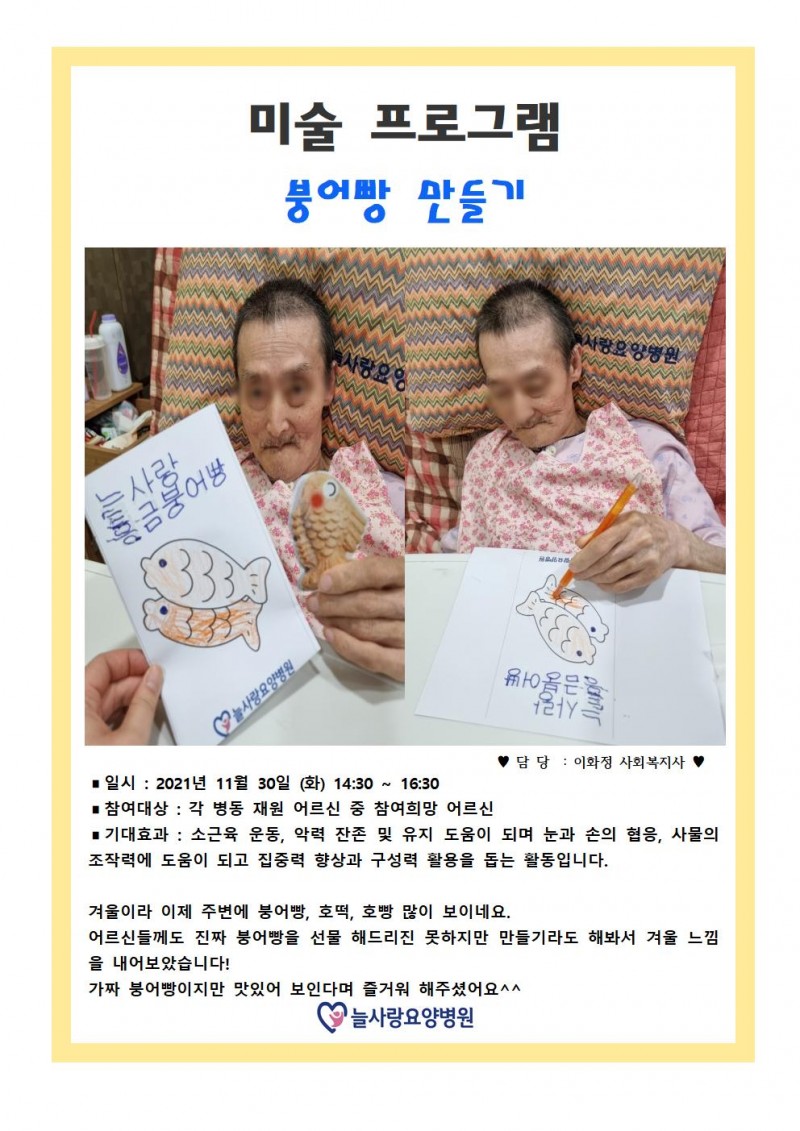 미술 프로그램
붕어빵 만들기
늘사랑요양병원
늘사랑요양병원
사랑
황금붕어빵
늘사랑요양병원
사랑
붕어빵
♥ 담 당 : 이화정 사회복지사 ♥
■일시 : 2021년 11월 30일 (화) 14:30 ~ 16:30
■참여대상 : 각 병동 재원 어르신 중 참여희망 어르신
■기대효과 : 소근육 운동, 악력 잔존 및 유지 도움이 되며 눈과 손의 협응, 사물의
조작력에 도움이 되고 집중력 향상과 구성력 활용을 돕는 활동입니다.
겨울이라 이제 주변에 붕어빵, 호떡, 호빵 많이 보이네요.
어르신들께도 진짜 붕어빵을 선물 해드리진 못하지만 만들기라도 해봐서 겨울 느낌
을 내어보았습니다!
가짜 붕어빵이지만 맛있어 보인다며 즐거워 해주셨어요^^
늘사랑요양병원